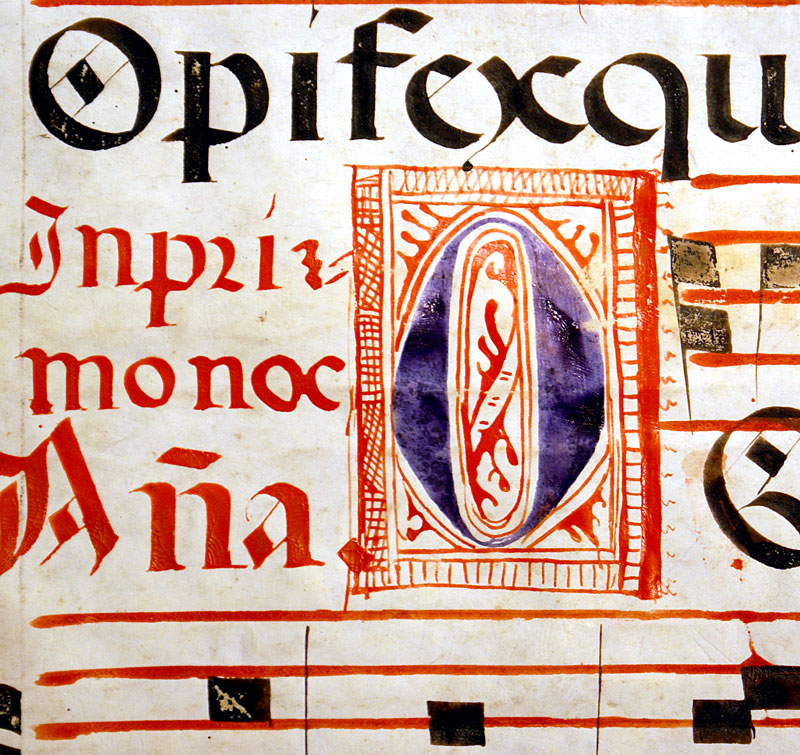 Opifexqu
In pri
mo noc
Aña. O